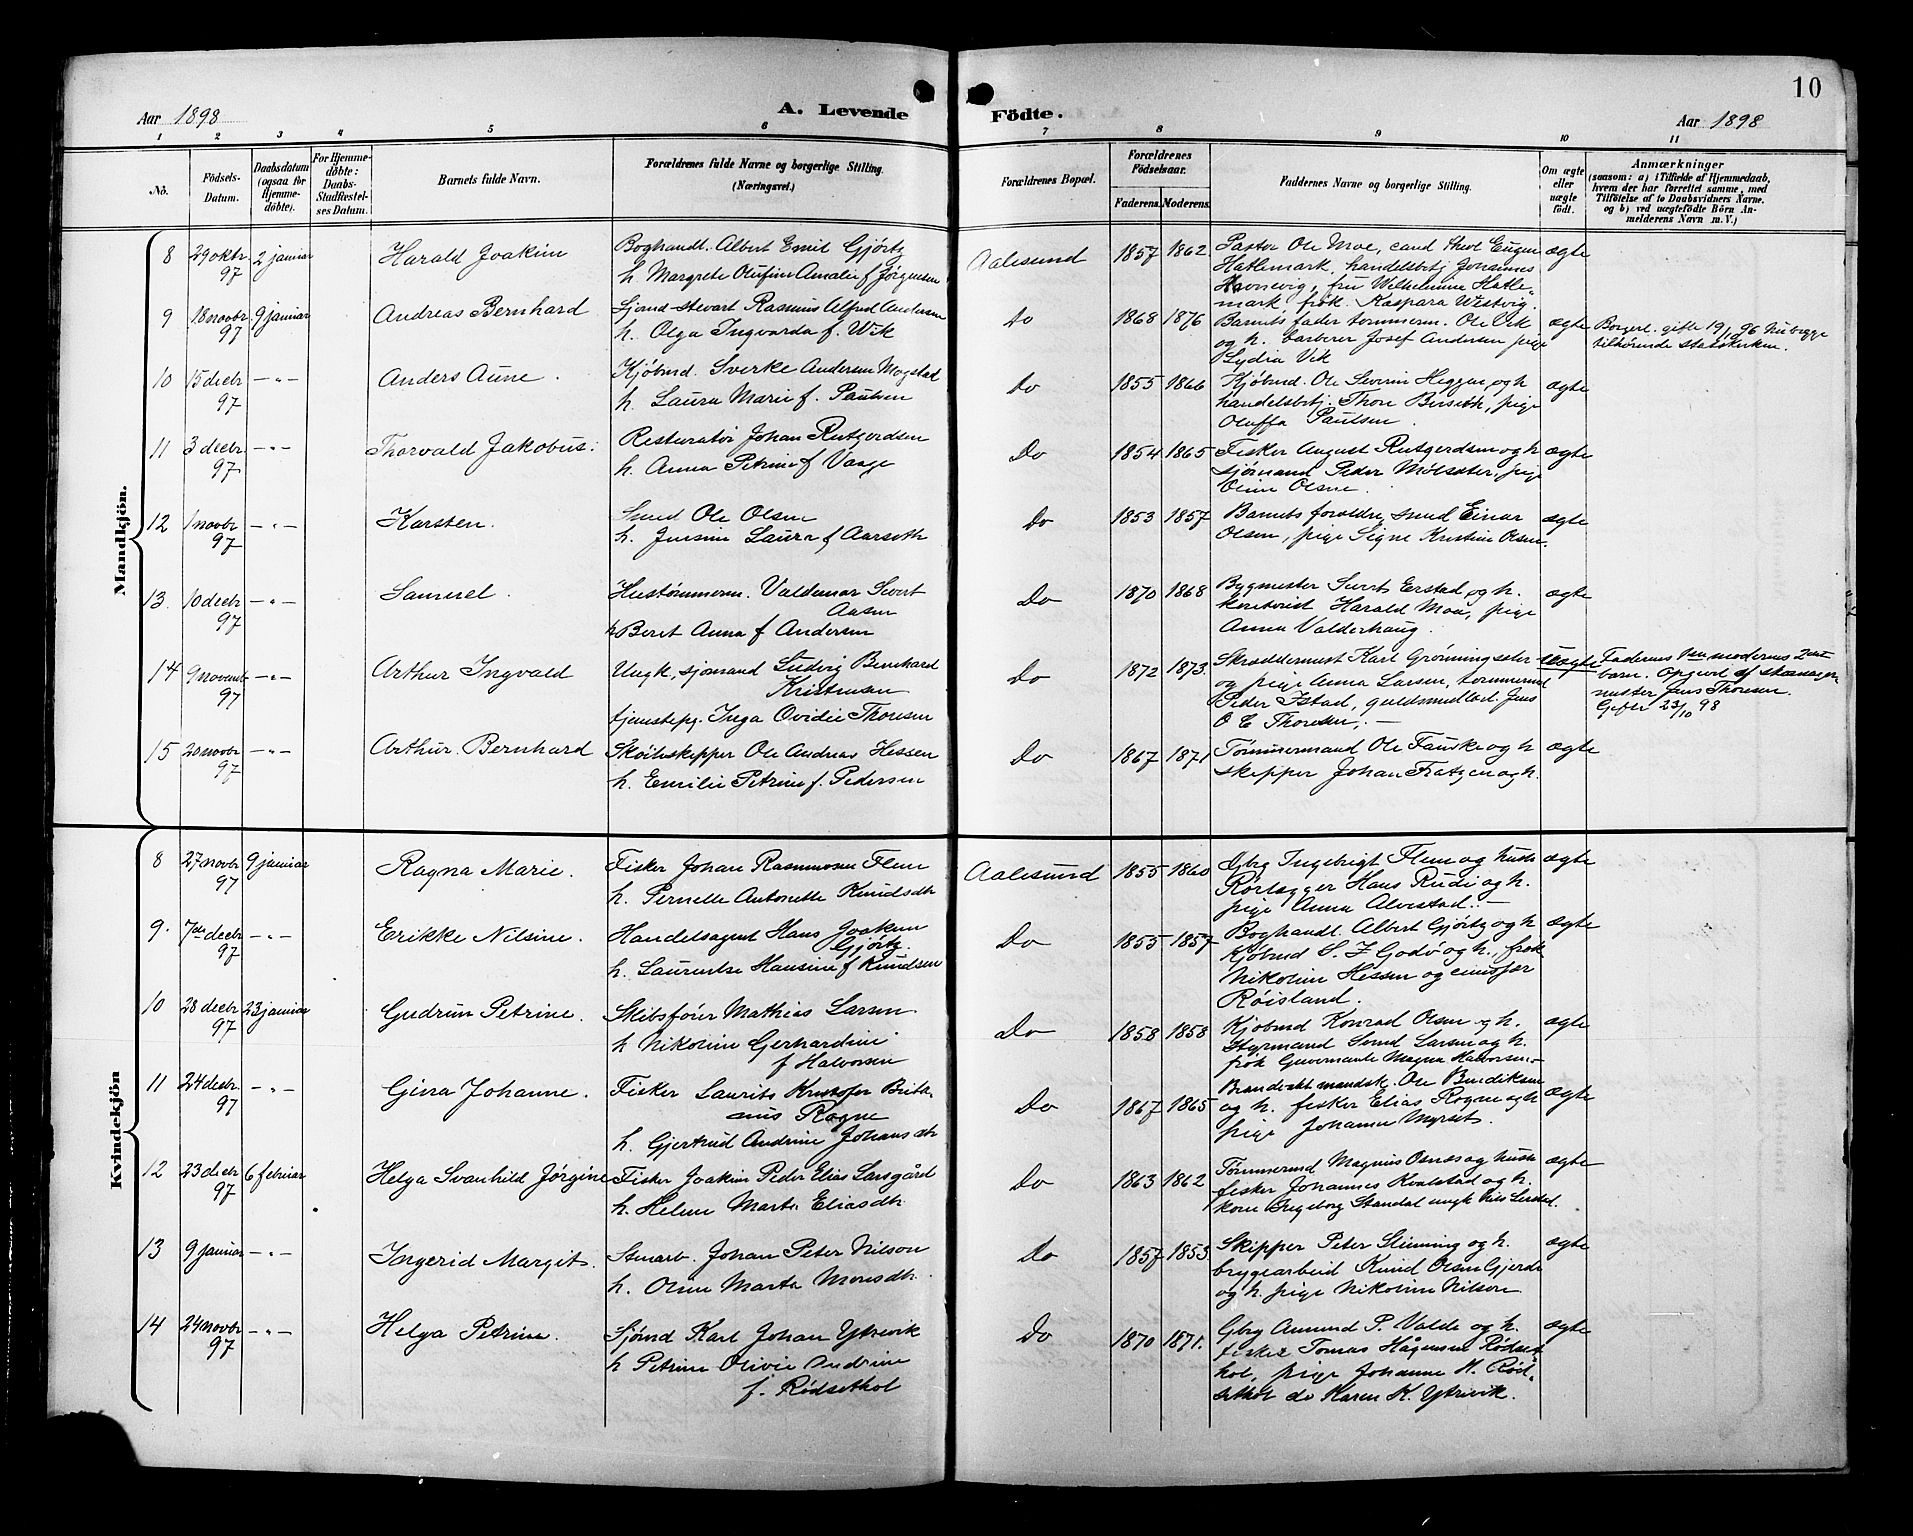 10
Aar 1898
A. Levende
Födte.
Aar 1898
1 2 3 4 5 6 7 8 9 10 11
No.
Födsels-
Datum.
Daabsdatum
(ogsaa for
Hjemme-
döbte).
For Hjemme-
döbte:
Daabs-
Stadfestel-
ses Datum.
Barnets fulde Navn.
Forældrenes fulde Navne og borgerlige Stilling.
(Næringsvei.)
Forældrenes Bopæl.
Forældrenes
Födselsaar.
Faderens. Moderens.
Faddernes Navne og borgerlige Stilling.
Om ægte
eller
uægte
födt.
Anmærkninger
(saasom: a) i Tilfælde af Hjemmedaab,
hvem der har forrettet samme, med
Tilföielse af to Daabsvidners Navne,
og b) ved uægtefödte Börn An-
melderens Navn m. V.)
Mandkjön.
8 29 oktbr 97 2 januar Harald Joakim
Boghandl. Albert Emil Gjørtz
h. Margrete Olufine Amalie f Jørgensen
Aalesund 1857 1862
Pastor Ole Moe, cand theol Eugen
Hatlemark, handelsbetj Johannes
Havnevig, fru Wilhelmine Hatle-
mark frøk. Kaspara Westvig.
ægte
9 18 novbr 97 9 januar Andreas Bernhard
Sjømd-stevart Rasmus Alfred Andersen
h. Olga Ingvarda f. Wik
do 1868 1876
Barnets fader tømmerm. Ole Vik
og h. barberer Josef Andersen pige
Lydia Vik
ægte
Borgerl. gifte 19/9 96 Nu begge
tilhørende statskirken.
10 15 decbr 97 -"- Anders Aune.
Kjøbmd. Sverke Andersen Mogstad
h. Laura Marie f. Paulsen
Do 1855 1866
Kjøbmd. Ole Severin Heggen og h
handelsbetj. Thore Berseth, pige
Oluffa Paulsen.
ægte
11 3 decbr 97 -"- Thorvald Jakobus.
Resturatør Johan Rutgerdsen
h. Anna Petrine f Vaage
Do 1854 1865
Fisker August Rutgerdsen og h
sjømand Peder Molsæter, pige
Oline Olsen.
ægte
12 1 novbr 97 -"- Karsten.
Smed Ole Olsen
h. Jensine Laura f Aarseth
Do 1853 1857
Barnets forældre, smed Einar
Olsen, pige Signe Kristine Olsen.
ægte
13. 10 decbr 97 -"- Samuel.
Hustømmerm. Valdemar Sivert
Aasen
h Beret Anna f Andersen
Do 1870 1868
Bygmester Sivert Erstad og h.
kontorist Harald Moa, pige
Anna Valderhaug.
ægte
14 9 novemb 97 -"- Arthur Ingvald
Ungk, sjømand Ludvig Bernhard
Kristensen
tjenstepg. Inga Ovidie Thoresen
Do 1872 1873.
Skræddermest Karl Grønningsæter
og pige Anna Larsen, tømmermd
Peder Istad, guldsmedlærl. Jens
O E Thoresen, -
Uægte
Faderens 1ste moderens 2det
barn. Opgivet af skomager-
mester Jens Thoresen.
Gifte 23/10 98
15 20 novbr 97 -"- Arthur Bernhard
Skøiteskipper Ole Andreas Hessen
h. Emilie Petrine f. Pedersen
Do 1867 1871.
Tømmermand Ole Fauske og h
skipper Johan Fratzen og h.
ægte
Kvindekjön
8 27 novbr 97 9 januar Ragna Marie.
Fisker Johan Rasmussen Flem
h. Pernelle Antonette Knudsdtr
Aalesund 1855 1860
Gbrg Ingebrigt Flem og hustr
Rørlægger Hans Rudi og h.
pige Anna Alvestad. -
ægte
9. 7de decbr 97 -"- Erikke Nilsine.
Handelsagent Hans Joakim
Gjørtz.
h. Laurentse Hansine f Knudsen
Do 1855 1857
Boghandl. Albert Gjørtz og h
Kjøbmd S. Z Godø og h., frøk
Nikoline Hessen og
Røisland.
ægte
10 28 decbr 97 23 januar Gudrun Petrine.
Skibsfører Mathias Larsen
h Nikoline Gerhardine
f Halvorsen
Do 1858 1858
Kjøbmd Konrad Olsen og h.
Styrmand Larsen og h.
frøk Guvernante Magna Halvorsen.
ægte
11 24 decbr. 97 -"- Gina Johanne.
Fisker Laurits Kristofer Brita-
nus Rogne
h. Gjertrud Andrine Johansdtr
Do 1867 1865
Brandvagtmandsk. Ole Bendiksen
og h. fisker Elias Rogne og h
pige Johanna Myrset.
ægte
12 23 decbr 97 6 februar Helga Svanhild Jørgine
Fisker Joakim Peder Elias Larsgård
h. Helene Marta Eliasdtr.
Do 1863 1862
Tømmermd Magnus Osnes og hustr
fisker Johannes Kvalstad og h.
kone Ingeborg Standal ungk Nils
ægte
13 9 januar -"- Ingerid Margit.
Stenarb. Johan Peter Nilson
h. Oline Marta Monsdtr.
Do 1857 1853
Skipper Peter Slinning og h.
bryggearbeid Knud Olsen Gjerde
og h. pige Nikoline Nilson
ægte
14 24 novbr 97 -"- Helga Petrine.
Sjømd Karl Johan Ytrevik
h Petrine Olivie Andrine
f. Rødsethol
Do 1870 1871.
Gbrg Amund P. Valde og h.
fisker Tomas Hågensen Rødset
hol, pige Johanne H. Rød-
sethol do Karen K. Ytrevik.
ægte